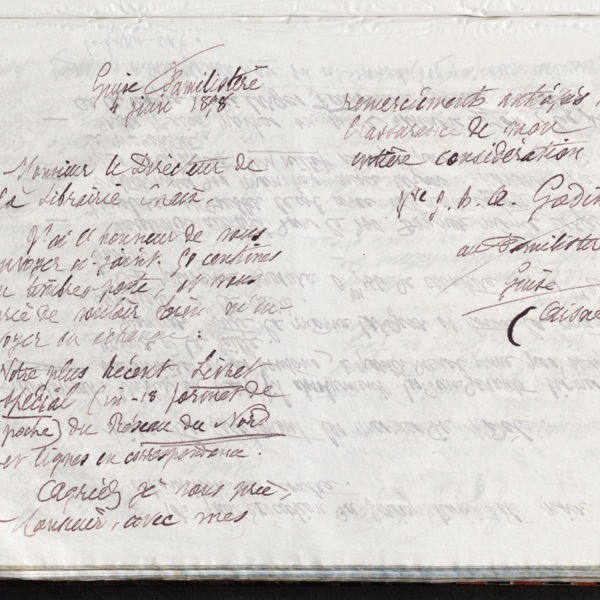 Guise Familistère
4 juin 1898
Monsieur le Directeur de
la Librairie Chaix,
J'ai l'honneur de vous
envoyer ci-joint 50 centimes
en timbres-poste, et vous
prie de vouloir bien m'en-
voyer en échange :
Notre plus récent Livret
spécial (in-18 format de
poche) du Réseau du Nord
et lignes en correspondance.
Agréez je vous prie,
Monsieur, avec mes
remerciements anticipés,
l'assurance de mon
entière considération
Vve J. B. A. Godin
au Familistère
Guise
(Aisne